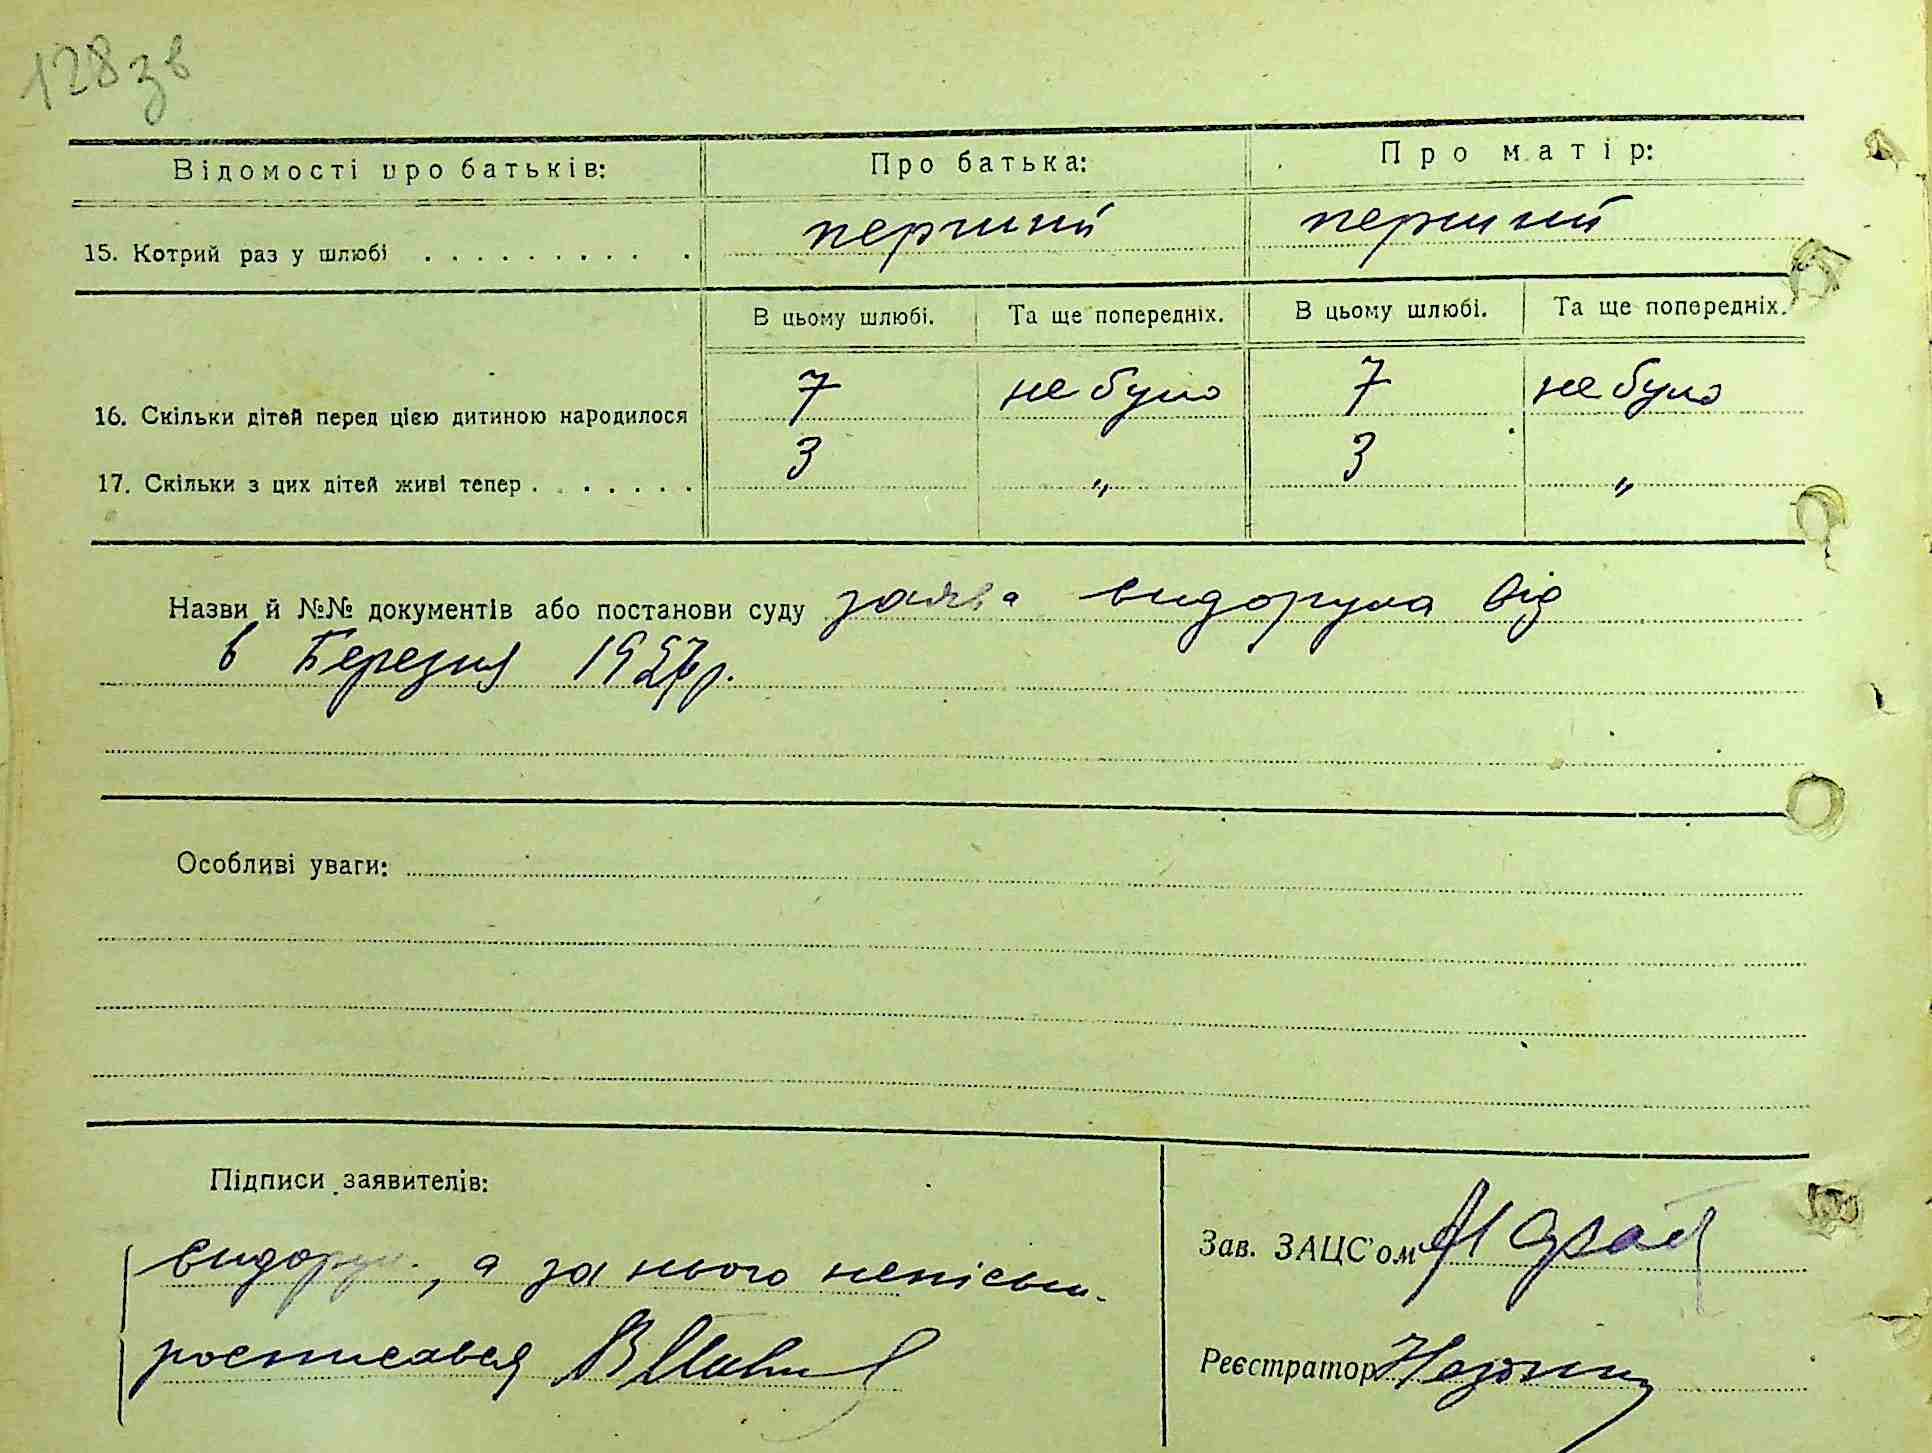 128 зв
Відомості про батьків: Про батька: Про матір:
15. Котрий раз у шлюбі . . . . . . . . . . перший перший
В цьому шлюбі. Та ще попередніх. В цьому шлюбі. Та ще попередніх.
16. Скільки дітей перед цією дитиною народилося 7 не було 7 не було
17. Скільки з цих дітей живі тепер . . . . . . . 3 „ 3 „
Назви й №№ документів або постанови суду заява від
в Березня 1927р.
Особливі уваги:
Підписи заявителів:
а за нього неписьм.
росписався
Зав. ЗАЦС'ом
Реєстратор